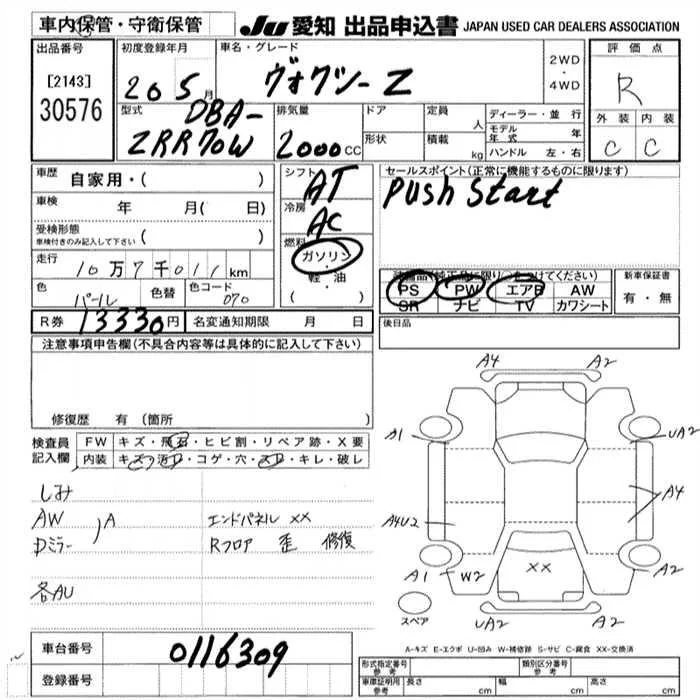 車内保管・守衛保管
JU 愛知 出品申込書 JAPAN USED CAR DEALERS ASSOCIATION
出品番号
[2143]
30576
初度登録年月
20 5 月
車名・グレード
ヴォクシー Z
2WD
・
4WD
評価点
R
外装 内装
C C
型式
DBA-
ZRR70W
排気量
2000 CC
ドア
形状
定員 人
積載 kg
ディーラー・並行
モデル年式 年
ハンドル 左・右
車歴 自家用・( )
車検 年 月( 日)
受検形態
車検付きのみ記入して下さい ( )
走行
10万7千011 km
色
パール
色替
色コード
070
シフト
AT
冷房
AC
燃料
ガソリン
軽・油
( ・ )
セールスポイント(正常に機能するものに限ります)
Push Start
PS PW エアB AW
SR ナビ TV カワシート
新車保証書
有・無
R券 13330円 名変通知期限 月 日
後日品
注意事項申告欄(不具合内容等は具体的に記入して下さい)
修復歴 有 (箇所
検査員
記入欄
FW キズ・飛石・ヒビ割・リペア跡・X要
内装 キズ・汚れ・コゲ・穴・スレ・キレ・破レ
しみ
AW
Dミラー
A
各AU
エンドパネル XX
Rフロア 歪 修復
A4 A2
A1 UA2
A4U2 A4
A1 W2 XX A2
UA2 A2
スペア
A-キズ E-エクボ U-凹み W-補修跡 S-サビ C-腐食 XX-交換済
車台番号 0116309
登録番号
形式指定番号
参考
類別区分番号
参考
車庫証明用
参考
長さ cm 幅 cm 高さ cm